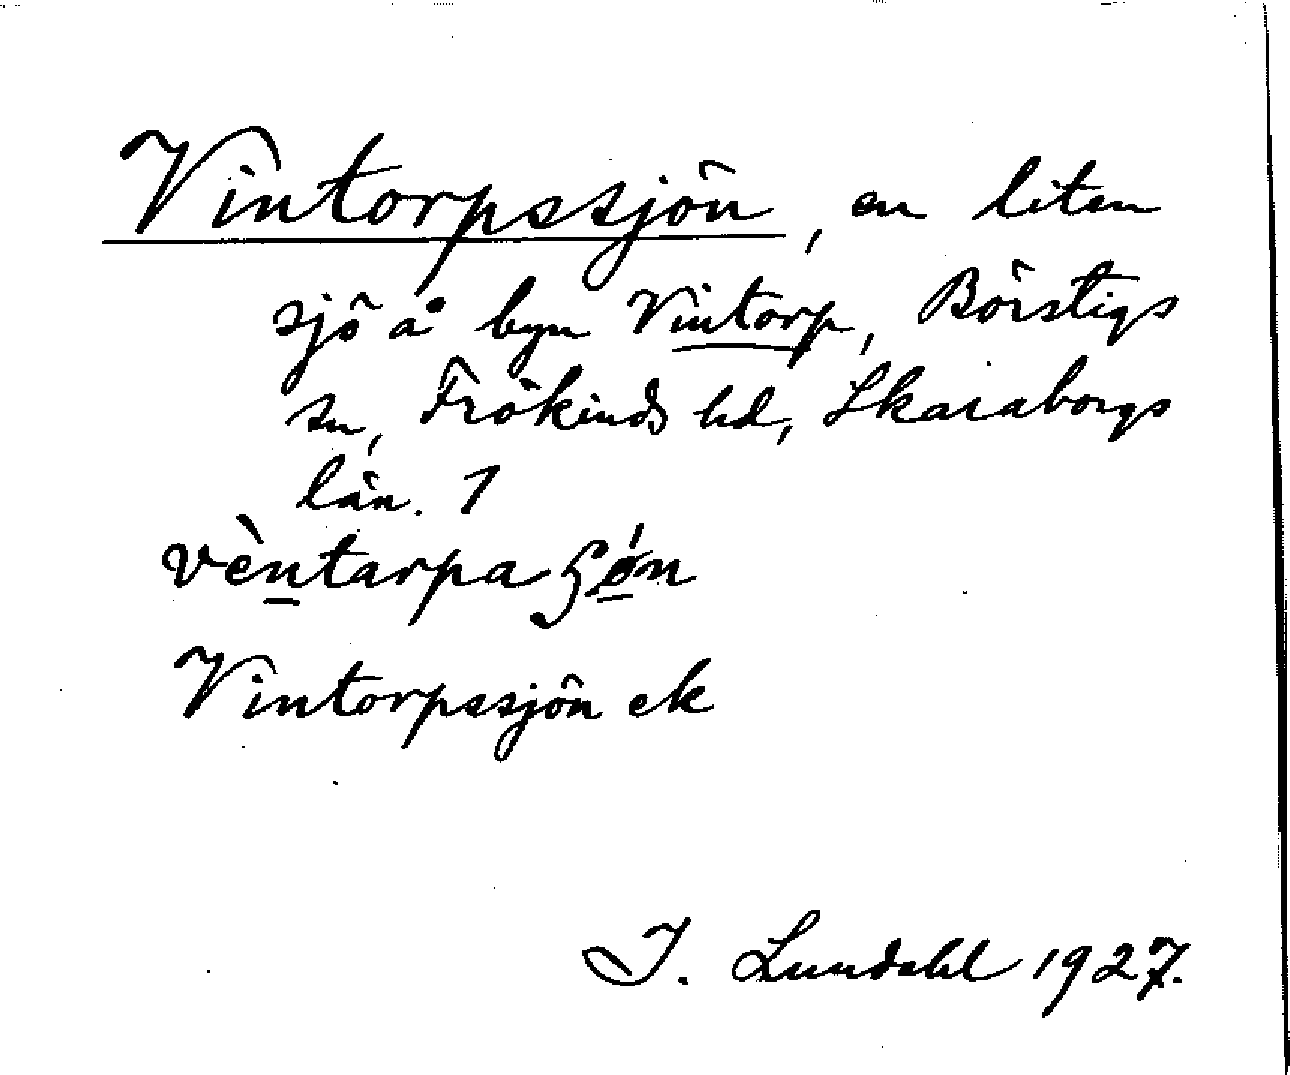 Vintorpssjön, en liten
sjö å byn Vintorp, Börstigs
sn, Frökinds hd, Skaraborgs
län. 1
vèntarpa ʂǿn
Vintorpssjön ek
I. Lundahl 1927.